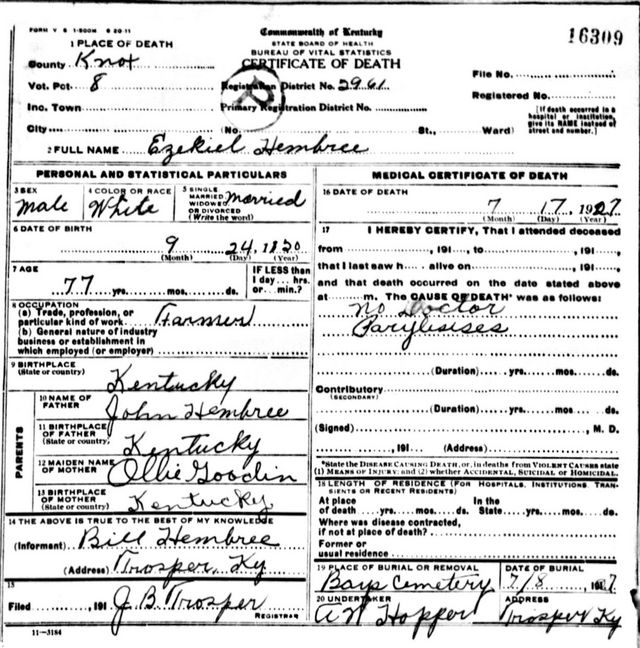 FORM V S 1-500M 6 20-11
Commonwealth of Kentucky
STATE BOARD OF HEALTH
BUREAU OF VITAL STATISTICS
CERTIFICATE OF DEATH
16309
1 PLACE OF DEATH
County Knox
Vot. Pct. 8
Inc. Town
City
Registration District No. 2961
Primary Registration District No.
(No. St., Ward)
File No.
Registered No.
[If death occurred in a hospital or institution, give its NAME instead of street and number.]
2 FULL NAME Ezekiel Hembree
PERSONAL AND STATISTICAL PARTICULARS
3 SEX Male
4 COLOR OR RACE White
5 SINGLE MARRIED WIDOWED OR DIVORCED (Write the word) Married
6 DATE OF BIRTH
9 24, 1820
(Month) (Day) (Year)
7 AGE
77 yrs. mos. ds.
IF LESS than 1 day... hrs. or... min.?
8 OCCUPATION
(a) Trade, profession, or particular kind of work Farmer
(b) General nature of industry business or establishment in which employed (or employer)
9 BIRTHPLACE (State or country) Kentucky
PARENTS
10 NAME OF FATHER John Hembree
11 BIRTHPLACE OF FATHER (State or country) Kentucky
12 MAIDEN NAME OF MOTHER Ollie Goodin
13 BIRTHPLACE OF MOTHER (State or country) Kentucky
14 THE ABOVE IS TRUE TO THE BEST OF MY KNOWLEDGE
(Informant) Bill Hembree
(Address) Trosper, Ky
15
Filed , 191 J. B. Trosper
REGISTRAR
11-3184
MEDICAL CERTIFICATE OF DEATH
16 DATE OF DEATH
7 17, 1927
(Month) (Day) (Year)
17 I HEREBY CERTIFY, That I attended deceased
from , 191 , to , 191 ,
that I last saw h alive on , 191 ,
and that death occurred on the date stated above
at m. The CAUSE OF DEATH* was as follows:
No Doctor
Parylisises
(Duration) yrs. mos. ds.
Contributory
(SECONDARY)
(Duration) yrs. mos. ds.
(Signed) , M. D.
, 191 (Address)
*State the DISEASE CAUSING DEATH, or, in deaths from VIOLENT CAUSES state
(1) MEANS OF INJURY; and (2) whether ACCIDENTAL, SUICIDAL or HOMICIDAL.
18 LENGTH OF RESIDENCE (FOR HOSPITALS, INSTITUTIONS, TRANSIENTS OR RECENT RESIDENTS)
At place of death yrs. mos. ds. In the State yrs. mos. ds.
Where was disease contracted, if not at place of death?
Former or usual residence
19 PLACE OF BURIAL OR REMOVAL Bays Cemetery
DATE OF BURIAL 7/8, 1917
20 UNDERTAKER A N Hopper
ADDRESS Trosper Ky